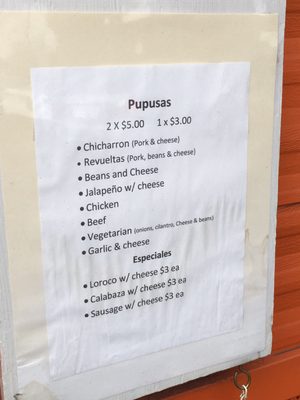 Pupusas
2 X $5.00 1 x $3.00
• Chicharron (Pork & cheese)
• Revueltas (Pork, beans & cheese)
• Beans and Cheese
• Jalapeño w/ cheese
• Chicken
• Beef
• Vegetarian (onions, cilantro, Cheese & beans)
• Garlic & cheese
Especiales
• Loroco w/ cheese $3 ea
• Calabaza w/ cheese $3 ea
• Sausage w/ cheese $3 ea